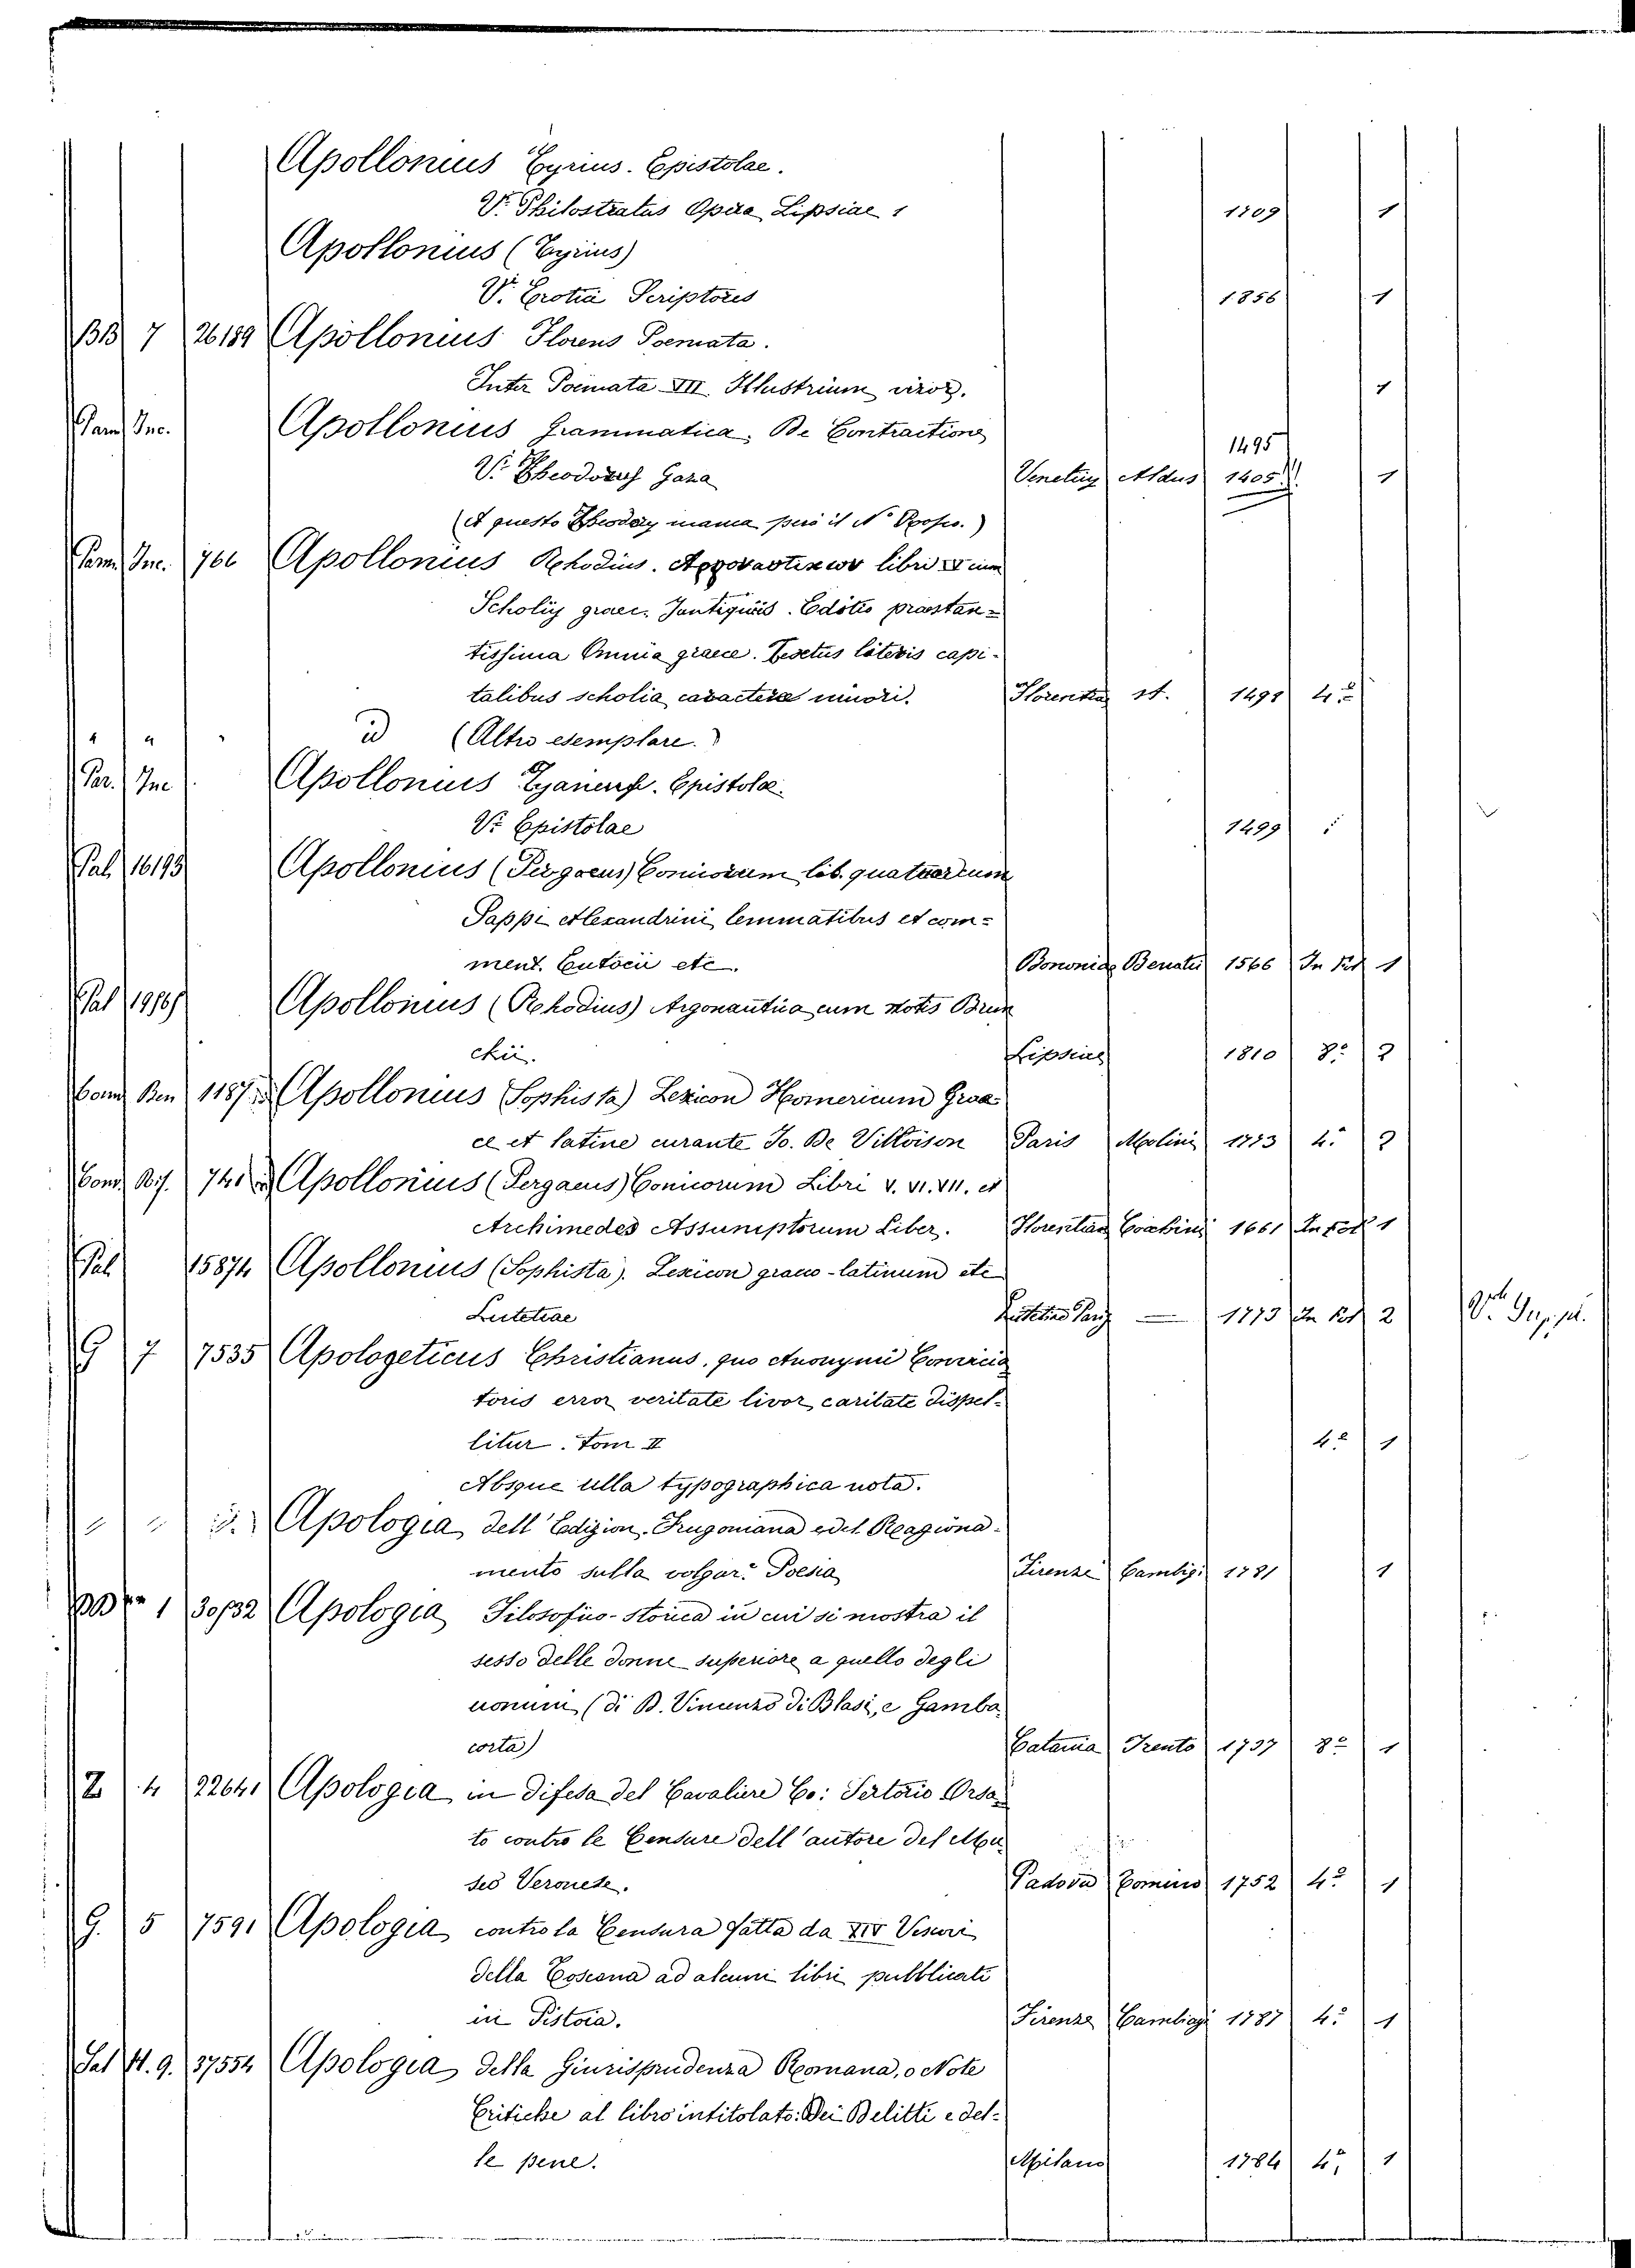 Apollonius Tyrius. Epistolae.
V. Philostratus Opera Lipsiae 1 1709 1
Apollonius (Tyrius)
V. Erotici Scriptores 1856 1
BB 7 26189 Apollonius Florens Poemata.
Inter Poemata VII. Illustrium viror. 1
Inc. Apollonius Grammatica. De Contractione
1495
V. Theodorus Gaza Venetiis Aldus 1405 1
(A questo manca però il N° Propr.)
Inc. 766 Apollonius Rhodius. libri IV cum
Scholiis graec. Editio praestan=
tissima Omnia graece. Textus literis capi-
talibus scholia caractere minori. Florentiae st. 1498 4°
" " " id (Altro esemplare.)
Par. Inc. Apollonius Tyanens. Epistolae.
V. Epistolae 1499
Pal. 16193 Apollonius (Pergaeus) Conicorum lib. quatuor cum
Pappi Alexandrini lemmatibus et com=
ment. Eutocii etc. Bononiae Benatii 1566 In fol 1
Pal Apollonius (Rhodius) Argonautica cum notis Brun
ckii. Lipsiae 1810 8° 2
1187 Apollonius (Sophista) Lexicon Homericum Grae
ce et latine curante Jo. De Villoison Paris Molini 1773 4° 2
741 Apollonius (Pergaeus) Conicorum Libri V. VI. VII. et
Archimedes Assumptorum Liber. Florentiae 1661 In fol 1
Pal 15874 Apollonius (Sophista). Lexicon graeco-latinum etc
Lutetiae Lutetiae Paris — 1773 In fol 2 V. Sup. pa.
G 7 7535 Apologeticus Christianus, quo Anonymi Convicia
toris error veritate livor caritate dispel-
litur. Tom II 4° 1
Absque ulla typographica nota.
" " id. Apologia dell'Edizion. Frugoniana e del Ragiona-
mento sulla volgar. Poesia Firenze Cambiagi 1781 1
1 30732 Apologia Filosofico-storica in cui si mostra il
sesso delle donne superiore a quello degli
uomini (di B. Vincenzo di Blasi, e Gamba
corta) Catania Trento 1737 8° 1
Z 4 22641 Apologia in difesa del Cavaliere Co: Sertorio Orsa
to contro le Censure dell'autore del Mu
seo Veronese. Padova Comino 1752 4° 1
G. 5 7591 Apologia contro la Censura fatta da XIV Vescovi
della Toscana ad alcuni libri pubblicati
in Pistoia. Firenze Cambiagi 1787 4° 1
Sal H. 9. 37554 Apologia della Giurisprudenza Romana, o Note
Critiche al libro intitolato: Dei Delitti e del-
le pene. Milano 1784 4° 1